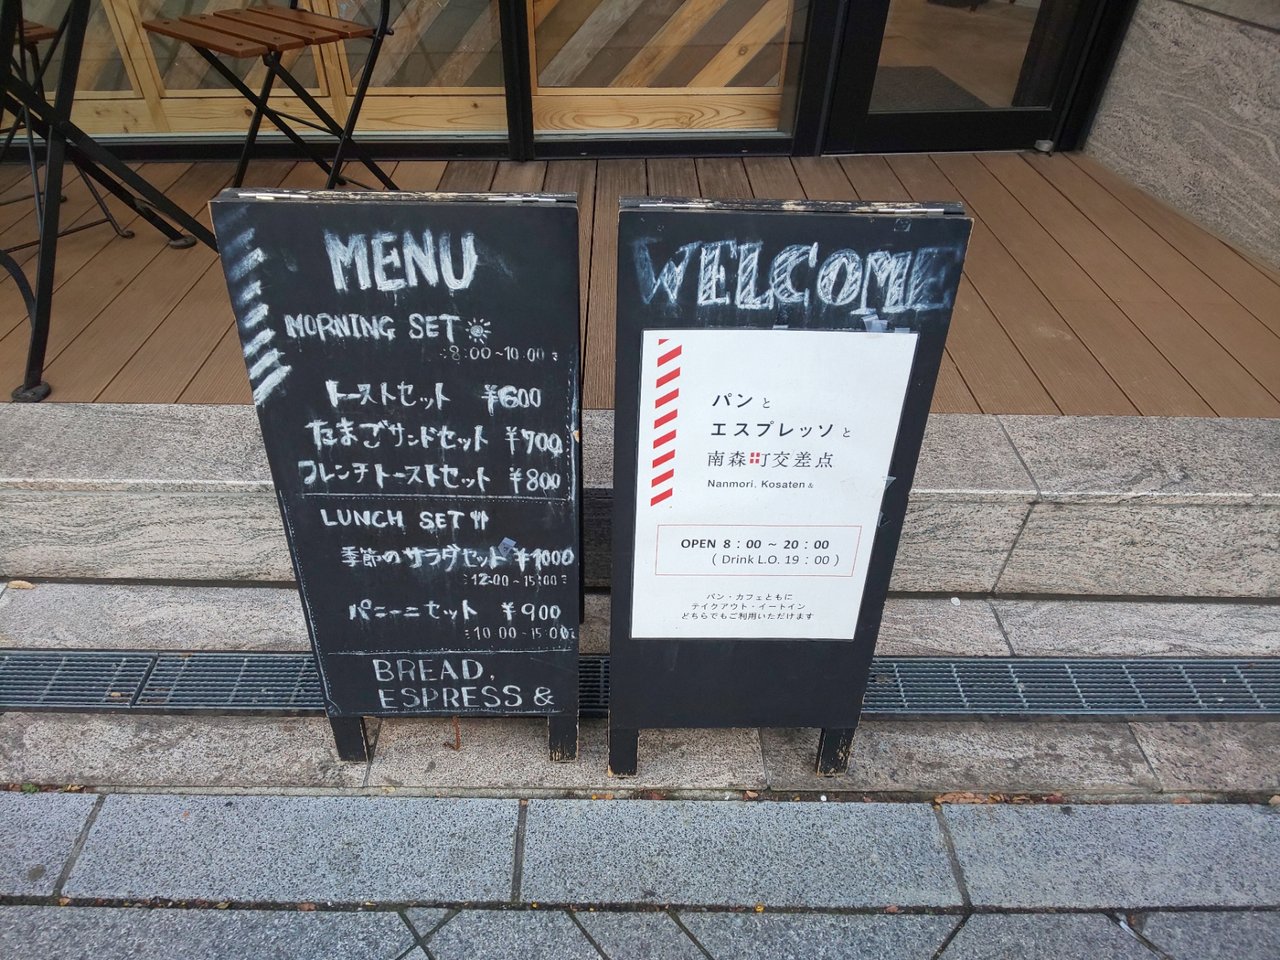 MENU
MORNING SET
8:00~10:00
トーストセット ¥600
たまごサンドセット ¥700
フレンチトーストセット ¥800
LUNCH SET
季節のサラダセット ¥1000
12:00~15:00
パニーニセット ¥900
10:00~15:00
BREAD,
ESPRESS &
WELCOME
パンと
エスプレッソと
南森町交差点
Nanmori, Kosaten &
OPEN 8:00 ~ 20:00
( Drink L.O. 19:00 )
パン・カフェともに
テイクアウト・イートイン
どちらでもご利用いただけます